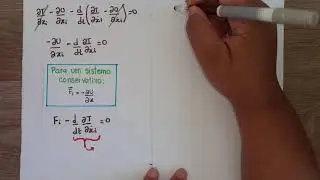 ∂T/∂xi - ∂U/∂xi - d/dt (∂T/∂ẋi - ∂U/∂ẋi) = 0
-∂U/∂xi - d/dt ∂T/∂ẋi = 0
Para um sistema
conservativo:
Fi = -∂U/∂x
Fi - d/dt ∂T/∂ẋi = 0